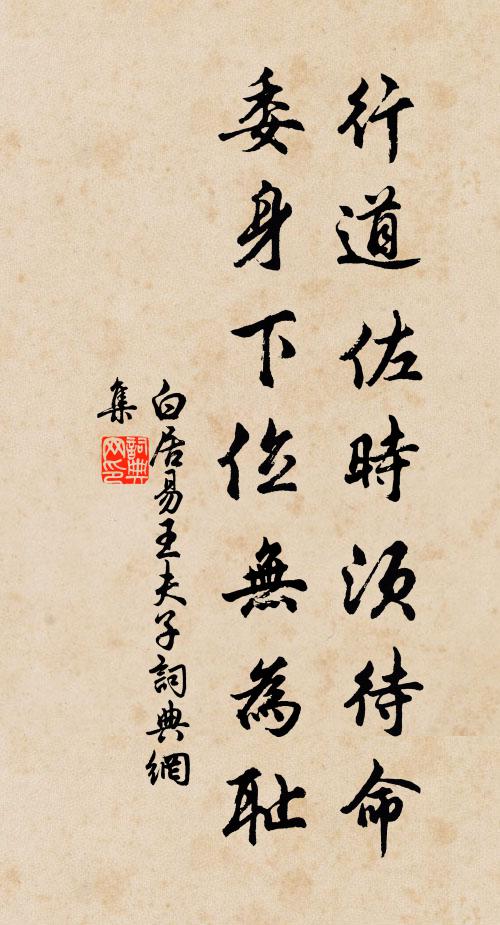 行道佐時須待命
委身下位無為耻
白居易王夫子詞典網
集
詞典
网印